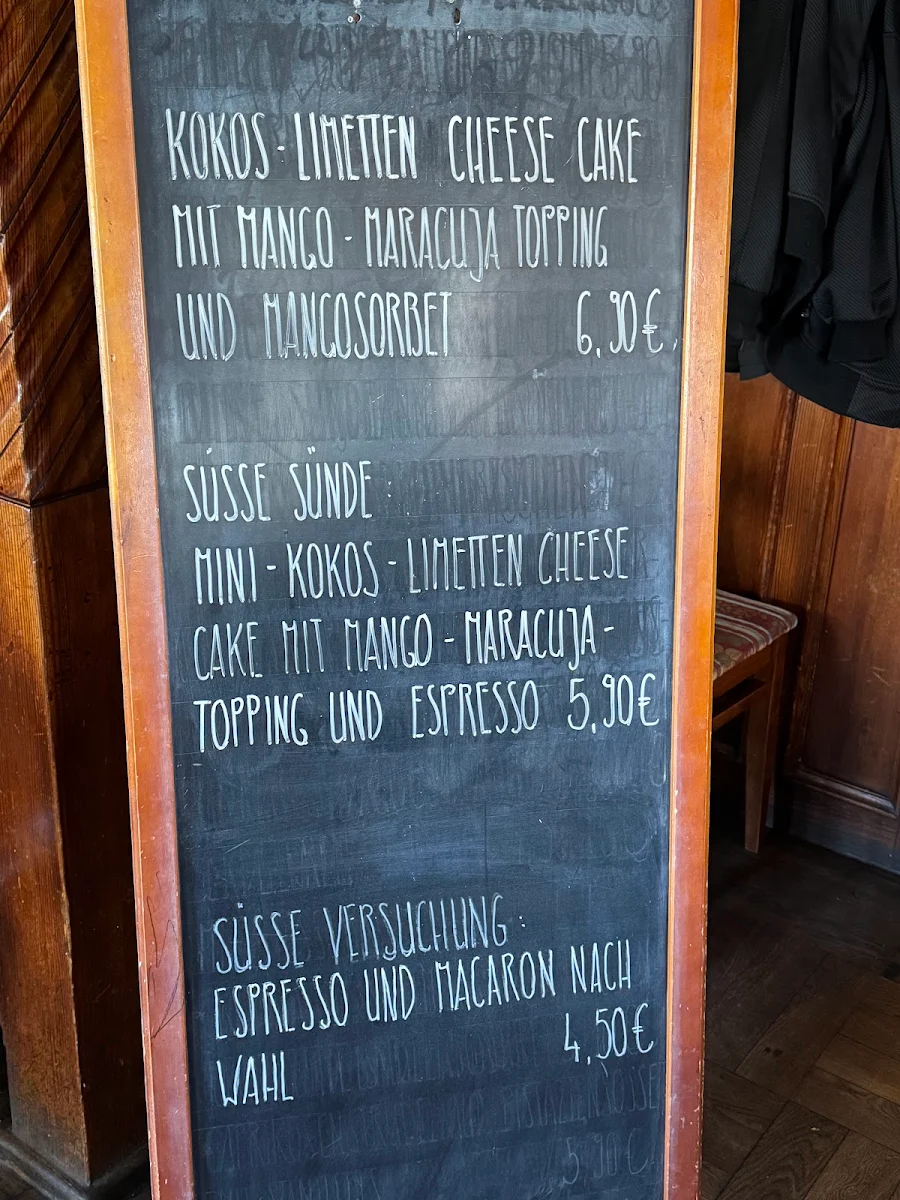 KOKOS - LIMETTEN CHEESE CAKE
MIT MANGO - MARACUJA TOPPING
UND MANGOSORBET 6,90€
SÜSSE SÜNDE
MINI - KOKOS - LIMETTEN CHEESE
CAKE MIT MANGO - MARACUJA -
TOPPING UND ESPRESSO 5,90€
SÜSSE VERSUCHUNG:
ESPRESSO UND MACARON NACH
WAHL 4,50€
5,90€